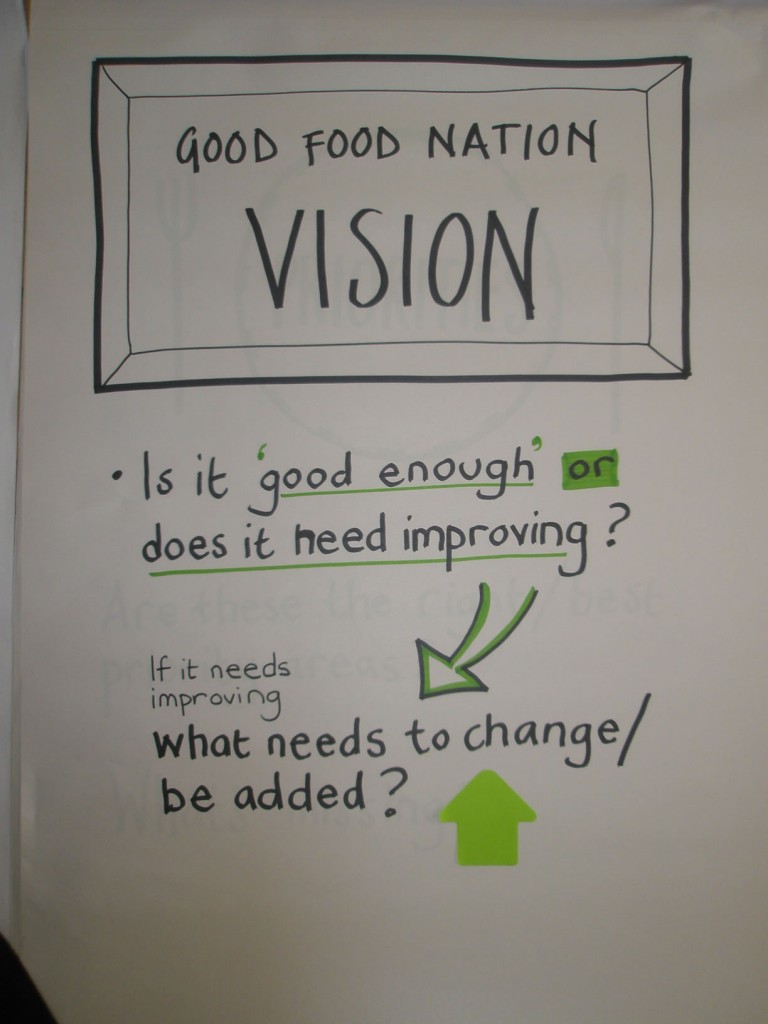 GOOD FOOD NATION
VISION
• Is it 'good enough' or
does it need improving?
If it needs
improving
what needs to change/
be added?
Are these the right/best